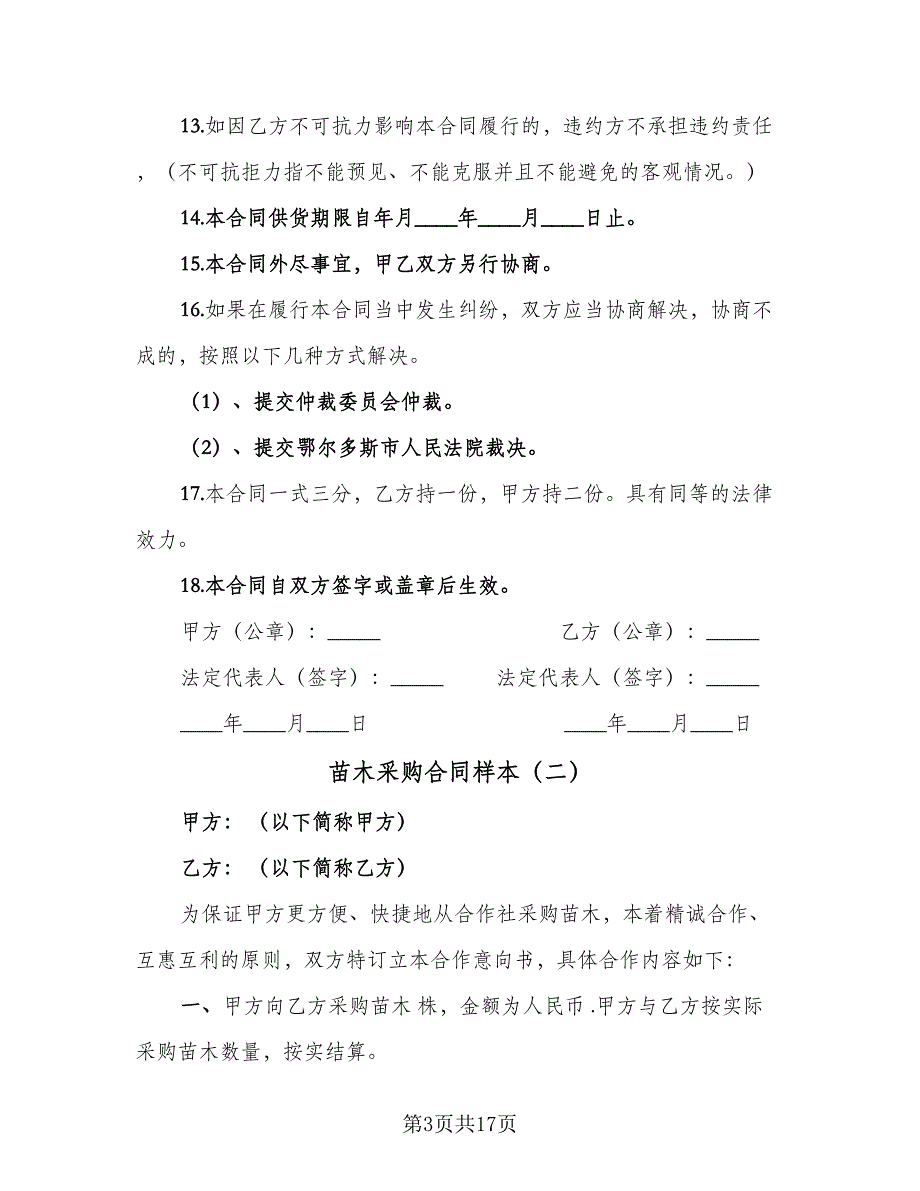 13.如因乙方不可抗力影响本合同履行的，违约方不承担违约责任
，（不可抗拒力指不能预见、不能克服并且不能避免的客观情况。）
14.本合同供货期限自年月____年____月____日止。
15.本合同外尽事宜，甲乙双方另行协商。
16.如果在履行本合同当中发生纠纷，双方应当协商解决，协商不
成的，按照以下几种方式解决。
（1）、提交仲裁委员会仲裁。
（2）、提交鄂尔多斯市人民法院裁决。
17.本合同一式三分，乙方持一份，甲方持二份。具有同等的法律
效力。
18.本合同自双方签字或盖章后生效。
甲方（公章）：_____ 乙方（公章）：_____
法定代表人（签字）：_____ 法定代表人（签字）：_____
____年____月____日 ____年____月____日
苗木采购合同样本（二）
甲方： （以下简称甲方）
乙方： （以下简称乙方）
为保证甲方更方便、快捷地从合作社采购苗木，本着精诚合作、
互惠互利的原则，双方特订立本合作意向书，具体合作内容如下：
一、甲方向乙方采购苗木 株，金额为人民币 .甲方与乙方按实际
采购苗木数量，按实结算。
第3页共17页